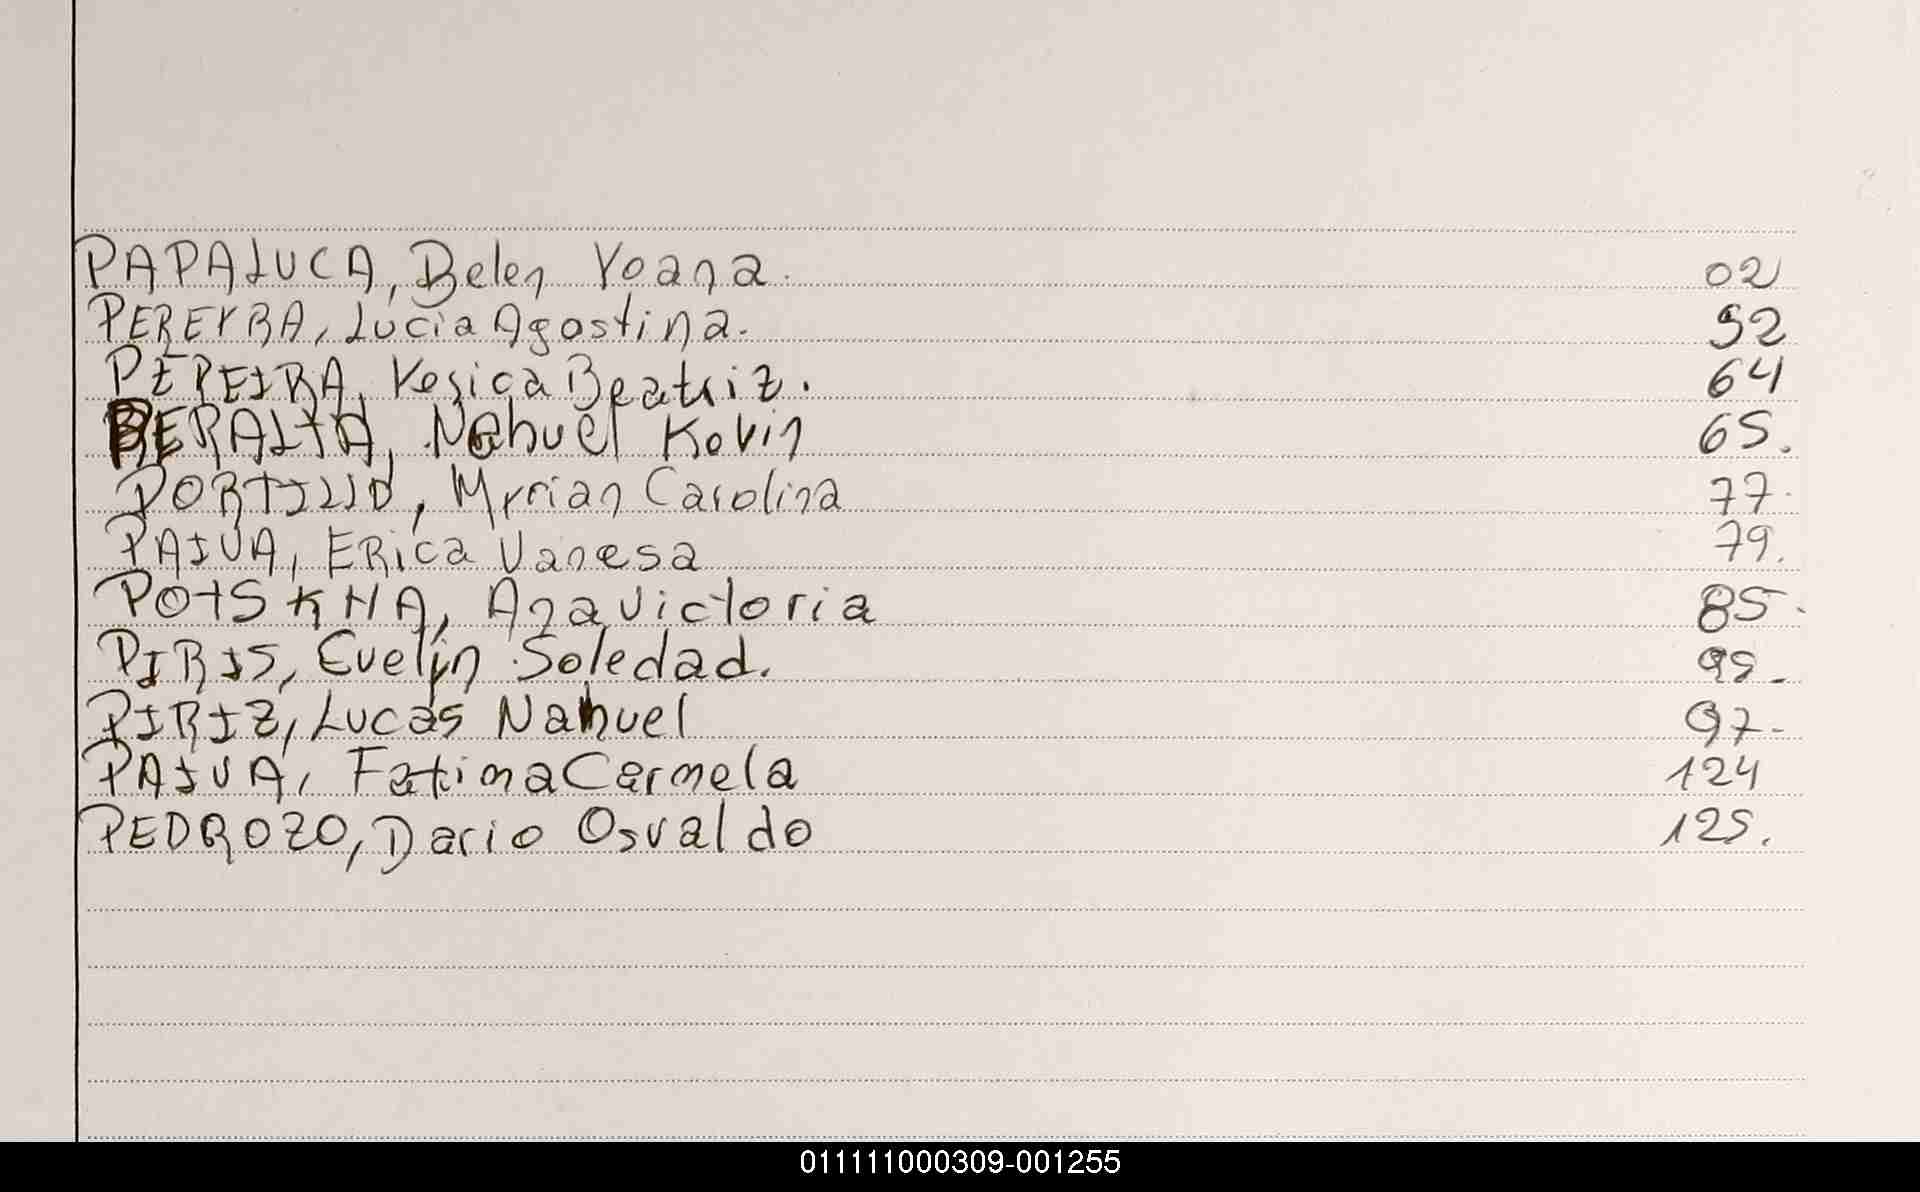 PAPALUCA, Belen Yoana. 02
PEREYRA, Lucia Agostina. 52
PEREIRA, Yesica Beatriz. 64
PERALTA, Nahuel Kevin 65.
PORTILLO, Myrian Carolina 77.
PAIVA, ERica Vanesa 79.
POTSKHA, Ana Victoria 85.
PIRIS, Evelyn Soledad.
PIRIZ, Lucas Nahuel 97.
PAIVA, Fatima Carmela 124
PEDROZO, Dario Osvaldo 125.
011111000309-001255